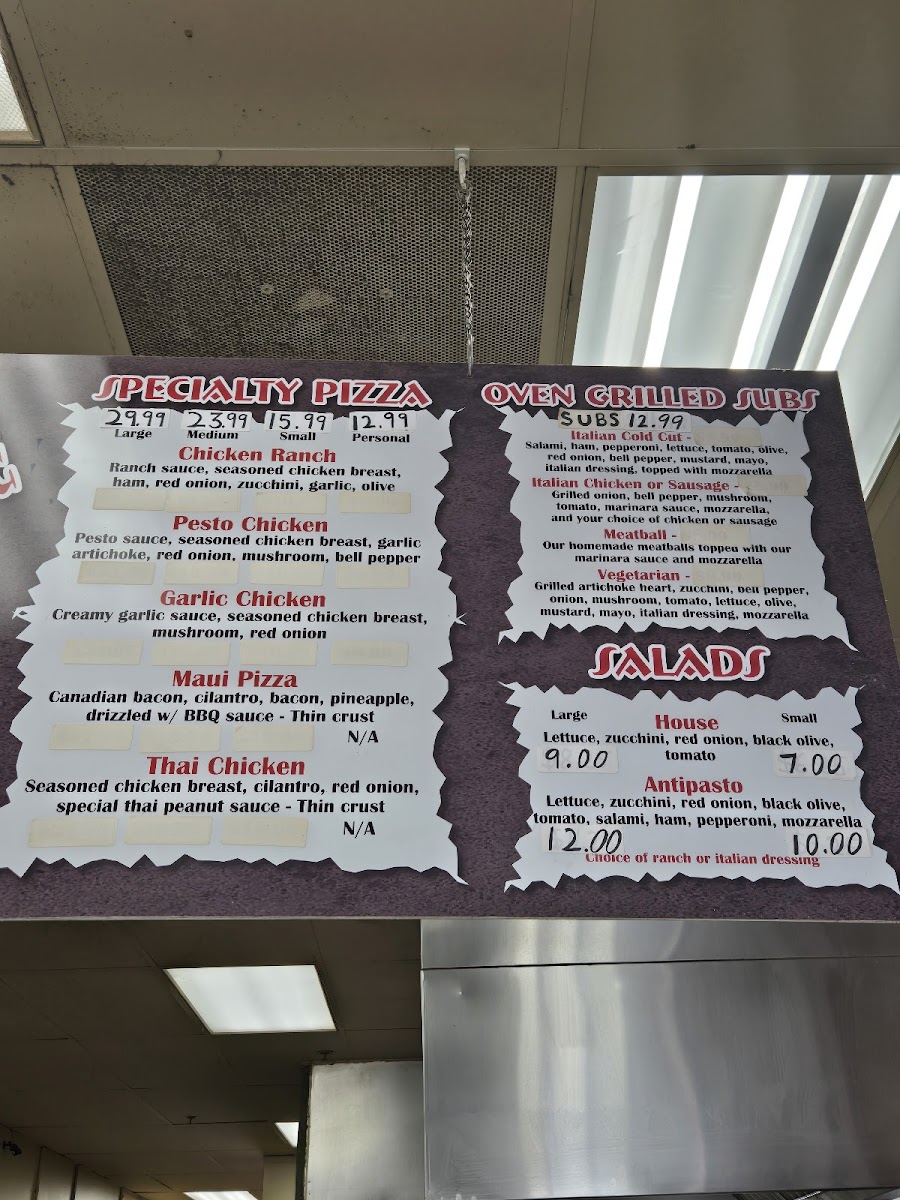 SPECIALTY PIZZA
29.99 23.99 15.99 12.99
Large Medium Small Personal
Chicken Ranch
Ranch sauce, seasoned chicken breast,
ham, red onion, zucchini, garlic, olive
Pesto Chicken
Pesto sauce, seasoned chicken breast, garlic
artichoke, red onion, mushroom, bell pepper
Garlic Chicken
Creamy garlic sauce, seasoned chicken breast,
mushroom, red onion
Maui Pizza
Canadian bacon, cilantro, bacon, pineapple,
drizzled w/ BBQ sauce - Thin crust
N/A
Thai Chicken
Seasoned chicken breast, cilantro, red onion,
special thai peanut sauce - Thin crust
N/A
OVEN GRILLED SUBS
SUBS 12.99
Italian Cold Cut -
Salami, ham, pepperoni, lettuce, tomato, olive,
red onion, bell pepper, mustard, mayo,
italian dressing, topped with mozzarella
Italian Chicken or Sausage -
Grilled onion, bell pepper, mushroom,
tomato, marinara sauce, mozzarella,
and your choice of chicken or sausage
Meatball -
Our homemade meatballs topped with our
marinara sauce and mozzarella
Vegetarian -
Grilled artichoke heart, zucchini, bell pepper,
onion, mushroom, tomato, lettuce, olive,
mustard, mayo, italian dressing, mozzarella
SALADS
Large House Small
Lettuce, zucchini, red onion, black olive,
tomato
9.00 7.00
Antipasto
Lettuce, zucchini, red onion, black olive,
tomato, salami, ham, pepperoni, mozzarella
12.00 10.00
Choice of ranch or italian dressing